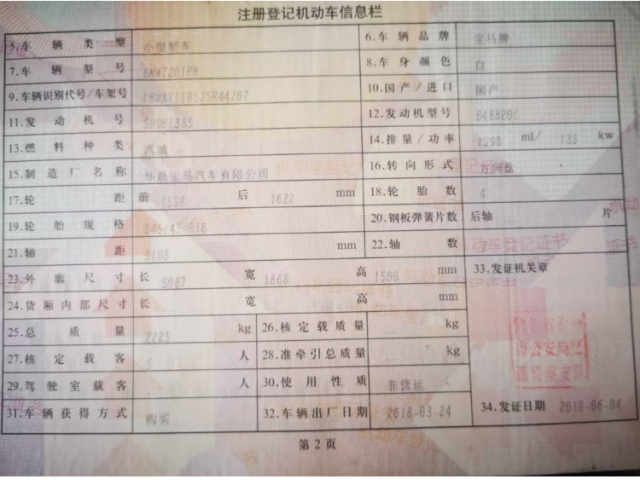 注册登记机动车信息栏
5.车辆类型 小型轿车 6.车辆品牌 宝马牌
7.车辆型号 8.车身颜色 白
9.车辆识别代号/车架号 10.国产/进口 国产
11.发动机号 12.发动机型号 B48B20C
13.燃料种类 汽油 14.排量/功率 1998 ml/ 135 kw
15.制造厂名称 华晨宝马汽车有限公司 16.转向形式 方向盘
17.轮距 前 1598 后 1622 mm 18.轮胎数 4
19.轮胎规格 245/45 R18 20.钢板弹簧片数 后轴 片
21.轴距 3108 mm 22.轴数 2
23.外廓尺寸 长 5087 宽 1868 高 1500 mm 33.发证机关章
24.货厢内部尺寸 长 宽 高 mm
25.总质量 2225 kg 26.核定载质量 kg
27.核定载客 5 人 28.准牵引总质量 kg
29.驾驶室载客 人 30.使用性质 非营运
31.车辆获得方式 购买 32.车辆出厂日期 2018-03-24 34.发证日期 2018-06-04
第2页